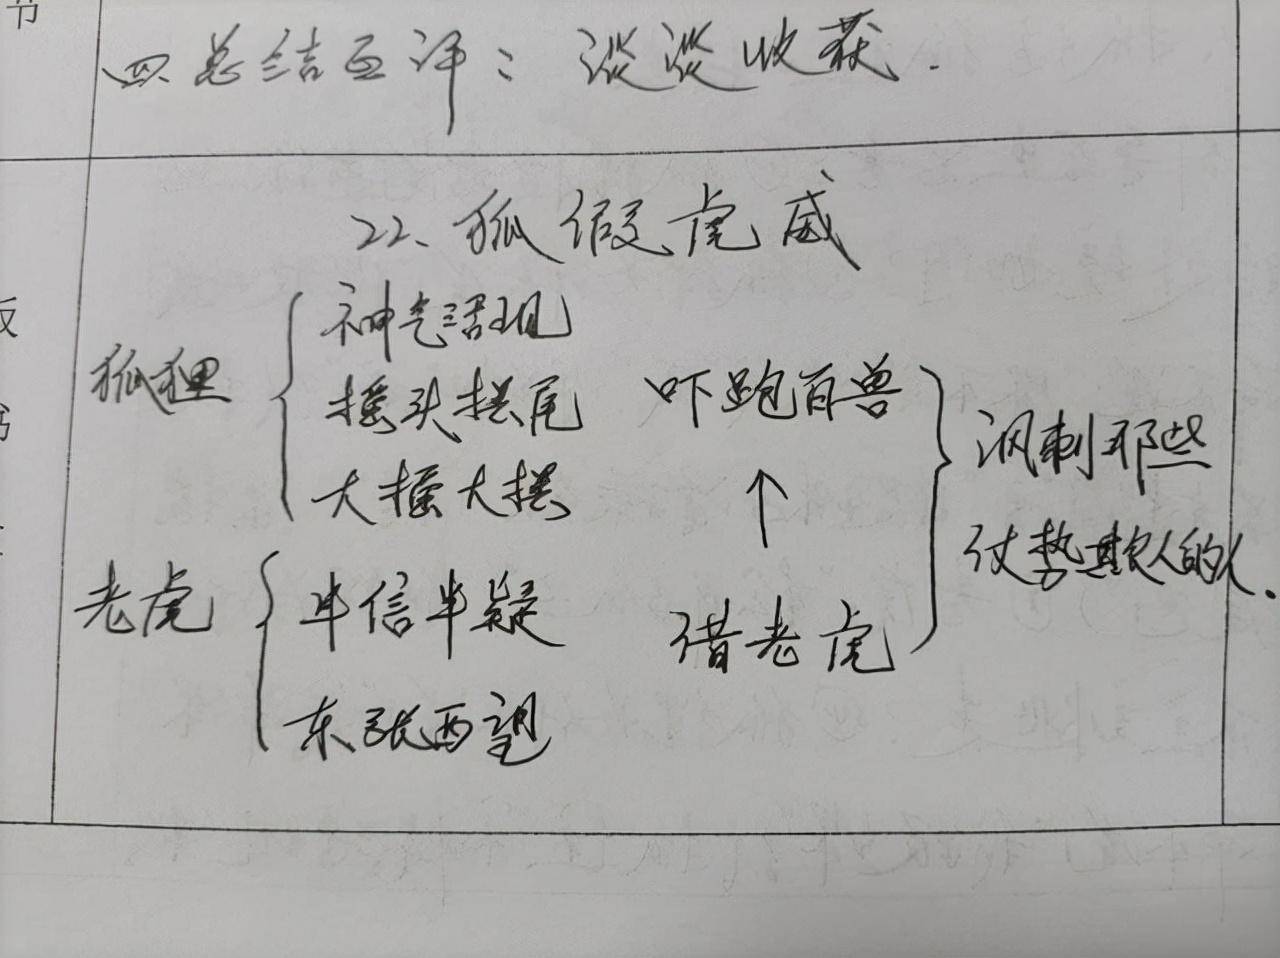 节
四 总结互评：谈谈收获.
22、狐假虎威
狐狸
神气活现
摇头摆尾
大摇大摆
吓跑百兽
↑
借老虎
老虎
半信半疑
东张西望
讽刺那些
仗势欺人的人.
板
书